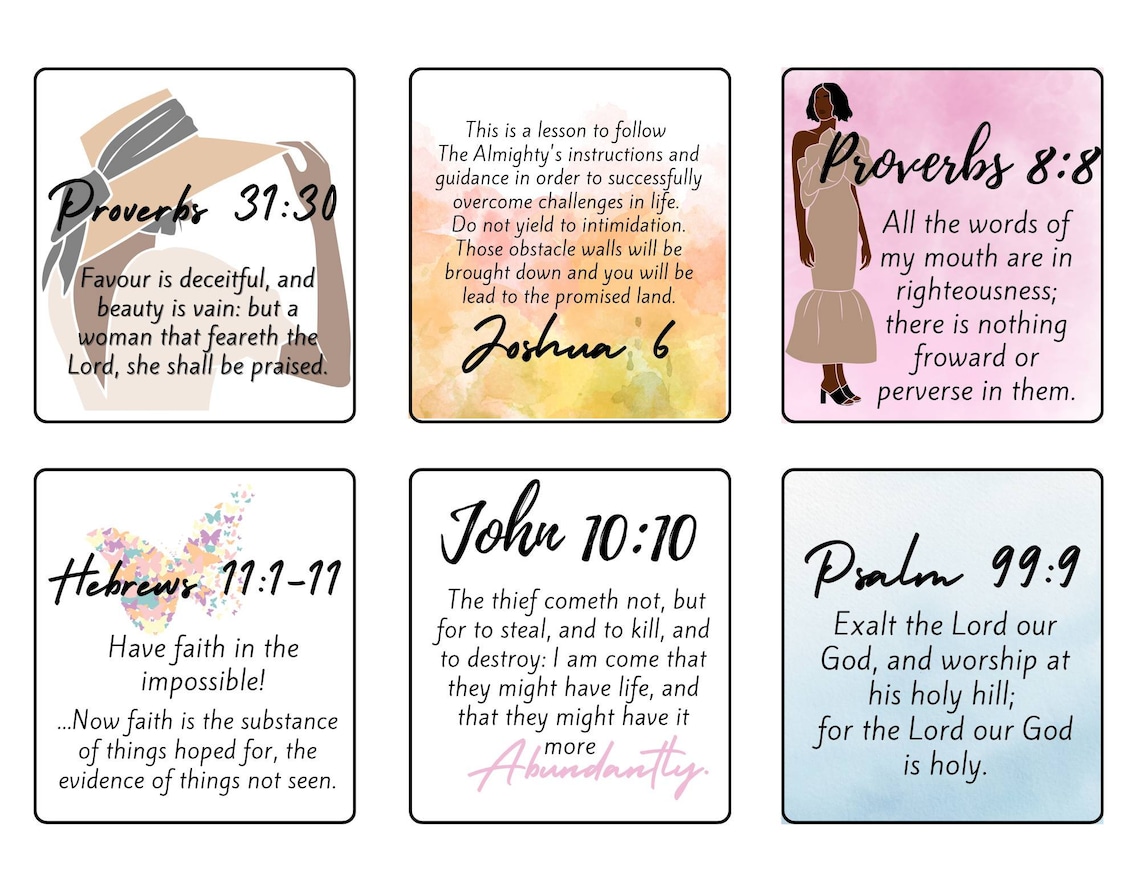 Proverbs 31:30
Favour is deceitful, and
beauty is vain: but a
woman that feareth the
Lord, she shall be praised.
This is a lesson to follow
The Almighty's instructions and
guidance in order to successfully
overcome challenges in life.
Do not yield to intimidation.
Those obstacle walls will be
brought down and you will be
lead to the promised land.
Joshua 6
Proverbs 8:8
All the words of
my mouth are in
righteousness;
there is nothing
froward or
perverse in them.
Hebrews 11:1-11
Have faith in the
impossible!
...Now faith is the substance
of things hoped for, the
evidence of things not seen.
John 10:10
The thief cometh not, but
for to steal, and to kill, and
to destroy: I am come that
they might have life, and
that they might have it
more
Abundantly.
Psalm 99:9
Exalt the Lord our
God, and worship at
his holy hill;
for the Lord our God
is holy.